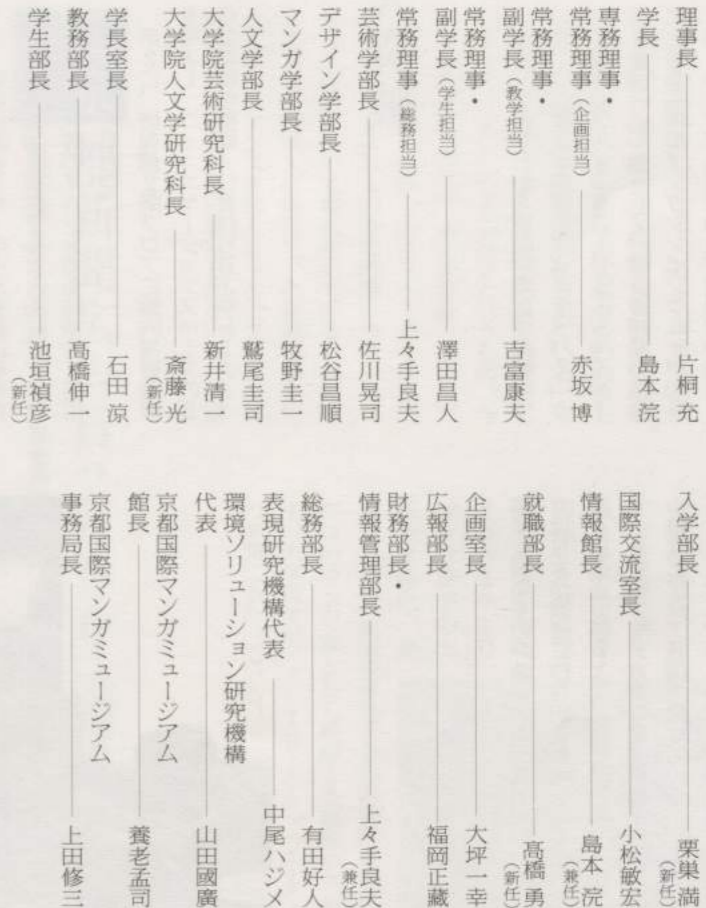 理事長 片桐 充
学長 島本 浣
専務理事・
常務理事(企画担当) 赤坂 博
常務理事・
副学長(教学担当) 吉富康夫
常務理事・
副学長(学生担当) 澤田昌人
常務理事(総務担当) 上々手良夫
芸術学部長 佐川晃司
デザイン学部長 松谷昌順
マンガ学部長 牧野圭一
人文学部長 鷲尾圭司
大学院芸術研究科長 新井清一
大学院人文学研究科長 斎藤 光(新任)
学長室長 石田 涼
教務部長 髙橋伸一
学生部長 池垣禎彦(新任)
入学部長 栗巣 満(新任)
国際交流室長 小松敏宏
情報館長 島本 浣(兼任)
就職部長 髙橋 勇(新任)
企画室長 大坪一幸
広報部長 福岡正藏
財務部長・
情報管理部長 上々手良夫(兼任)
総務部長 有田好人
表現研究機構代表 中尾ハジメ
環境ソリューション研究機構
代表 山田國廣
京都国際マンガミュージアム
館長 養老孟司
京都国際マンガミュージアム
事務局長 上田修三